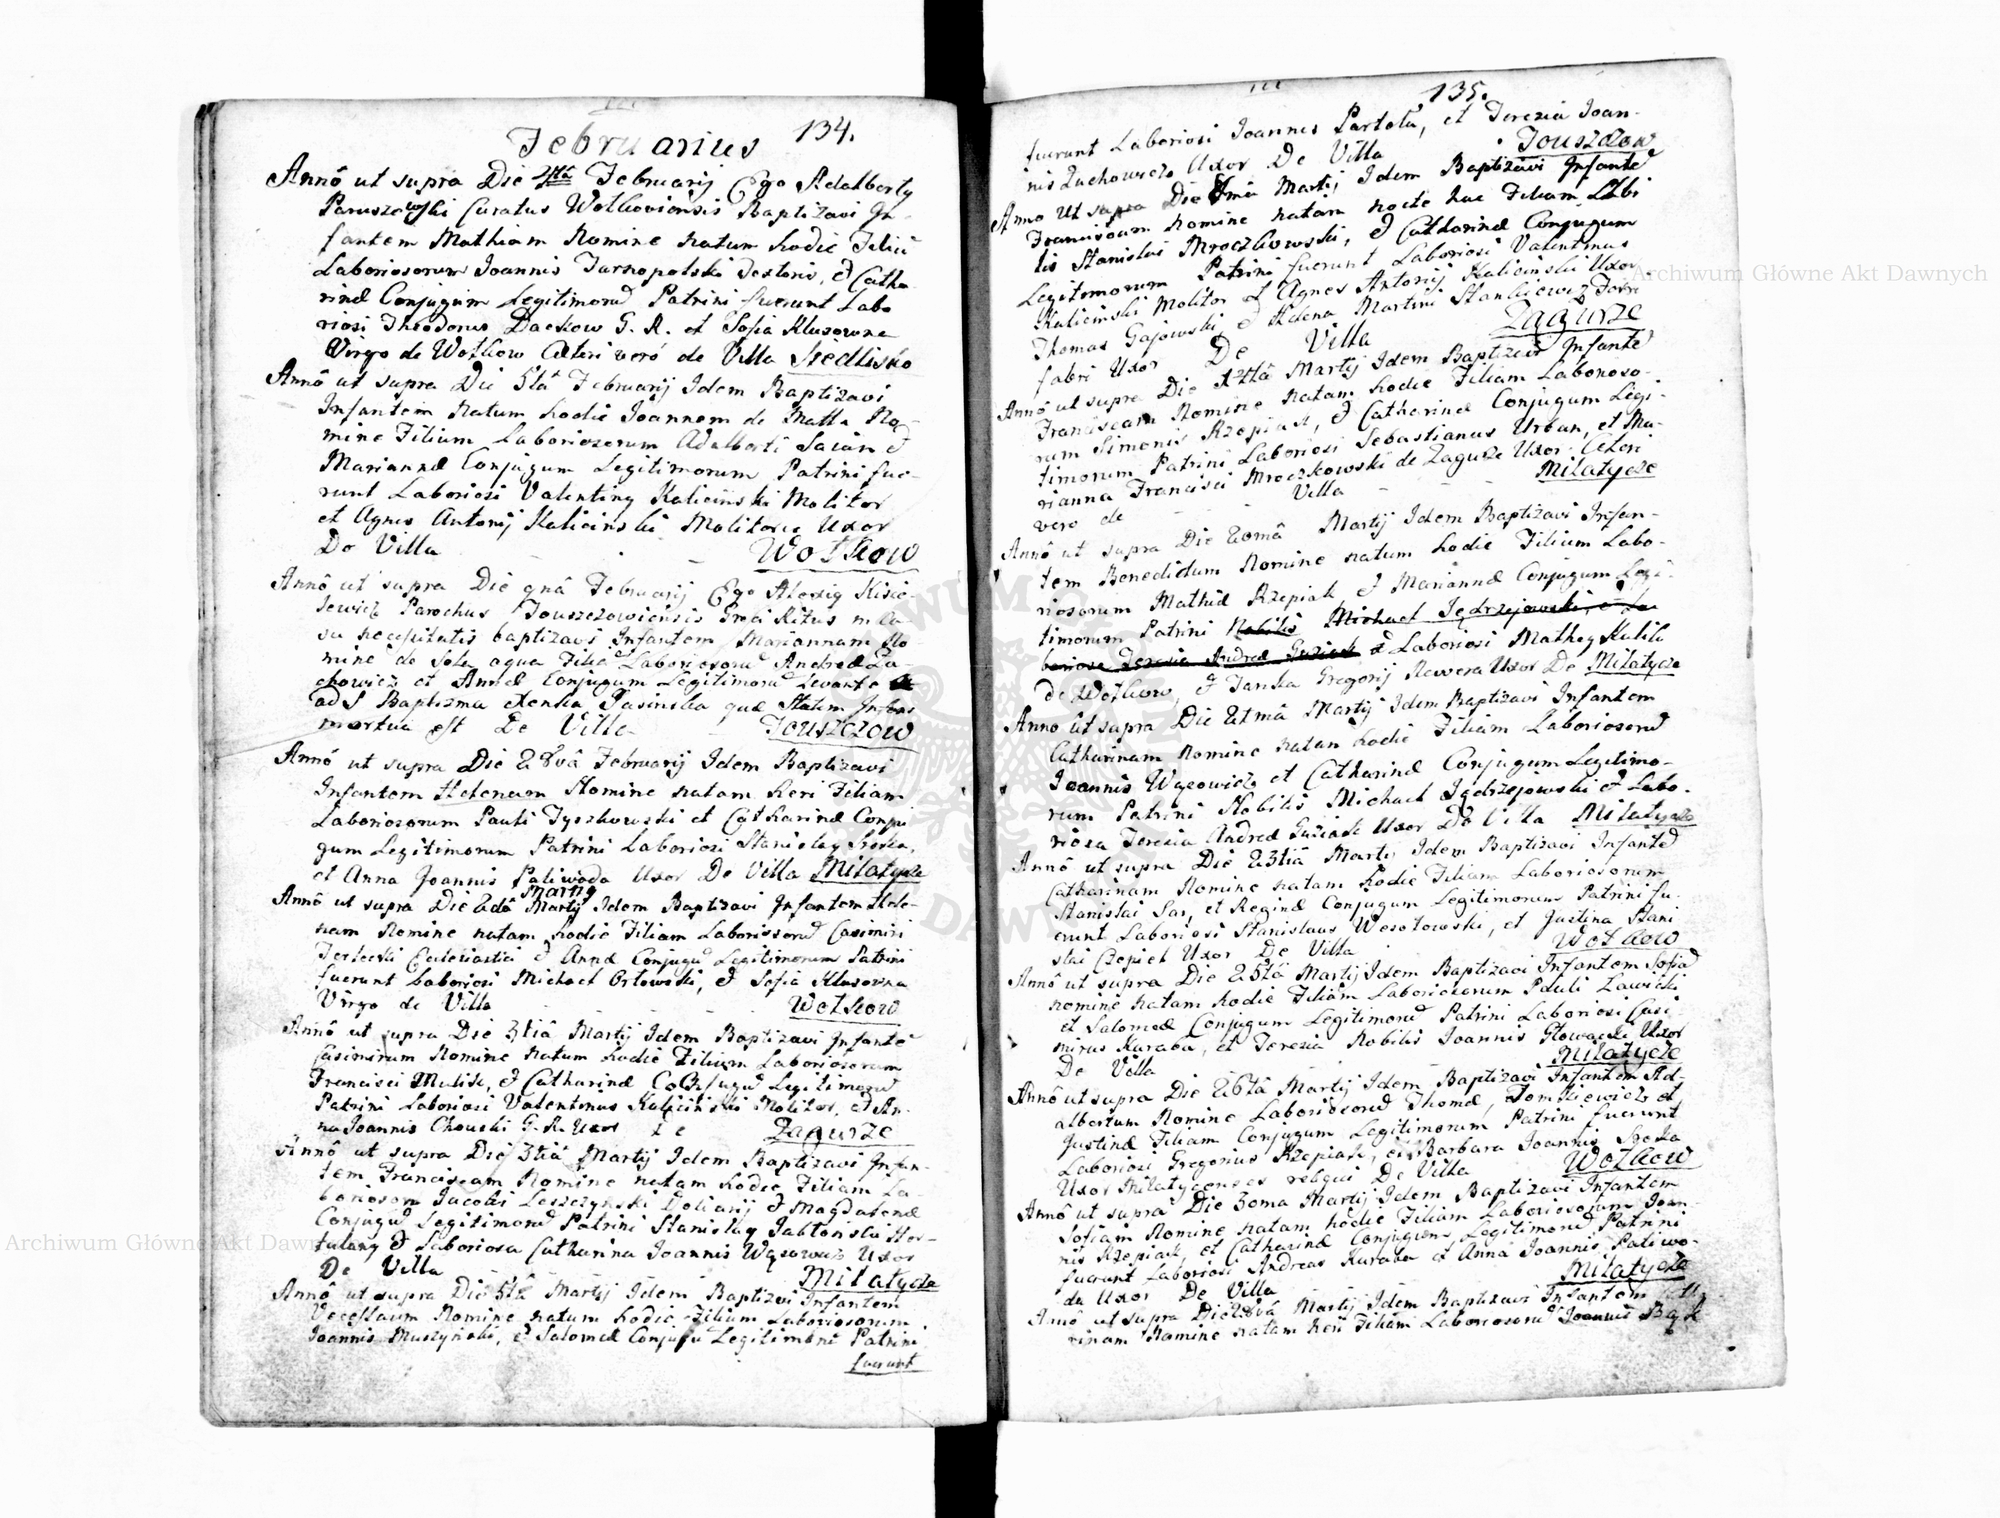 134.
Februarius
Annô ut supra Die 4tâ Februarij Ego Adalbertg
Paruszewski Curatus Wołkoviensis Baptizavi In-
fantem Mathiam Nomine natum hodie Filiū
Laboriosorum Joannis Tarnopolski Textoris, et Catha-
rinæ Conjugum Legitimorū Patrini fuerunt Labo
riosi Theodorus Dackow G. R. et Sofia Klusowna
Virgo de Wołkow Cæteri verò de Villa Siedlisko
Annô ut supra Die 5tâ Februarij Idem Baptizavi
Infantem natum hodie Joannem de Matta No-
mine Filium Laboriosorum Adalberti Saian et
Mariannæ Conjugum Legitimorum Patrini fue-
runt Laboriosi Valenting Kaliciński Molitor
et Agnes Antonij Kaliciński Molitoris Uxor
De Villa Wołkow
Annô ut supra Die 9nâ Februarij Ego Alexig Kisie-
lewicz Parochus Touszczowiensis Græci Ritus in Ca-
su necessitatis baptizavi Infantem Mariannam No-
mine de sola aqua Filiā Laboriosorū Andreæ Za-
chowicz et Annæ Conjugum Legitimorū Levante
ad S Baptisma Xenka Jasinska quæ statim Infans
mortua est De Villa Touszczow
Annô ut supra Die 28vâ Februarij Idem Baptizavi
Infantem Helenam Nomine natam heri Filiam
Laboriosorum Pauli Tyszkowski et Catharinæ Conju
gum Legitimorum Patrini Laboriosi Stanislag Sroka,
et Anna Joannis Paliwoda Uxor De Villa Miłatycze
Martij
Annô ut supra Die 2dâ Martij Idem Baptizavi Infantem Hele-
nam Nomine natam hodie Filiam Laboriosorū Casimiri
Terlecki Ecclesiastici et Annæ Conjugū Legitimorum Patrini
fuerunt Laboriosi Michael Orłowski, et Sofia Klusowna
Virgo de Villa Wołkow
Annô ut supra Die 3tiâ Martij Idem Baptizavi Infantē
Casimirum Nomine natum hodie Filium Laboriosorum
Francisci Mulik, et Catharinæ Conjugū Legitimorū
Patrini Laboriosi Valentinus Kaliciński Molitor, et An-
na Joannis Chouski G. R. Uxor De Zagurze
Annô ut supra Die 3tiâ Martij Idem Baptizavi Infan-
tem Franciscam Nomine natam hodie Filiam La-
boriosorū Jacobi Leszczynski Doliarij et Magdalenæ
Conjugū Legitimorū Patrini Stanislag Jabłonski Hor-
tulang et Laboriosa Catharina Joannis Wąsowicz Uxor
De Villa Miłatycze
Annô ut supra Die 5tâ Martij Idem Baptizavi Infantem
Vecessaum Nomine natum hodie Filium Laboriosorum
Joannis Muszyński, et Salomeæ Conjugū Legitimorū Patrini
fuerunt
135.
fuerunt Laboriosi Joannes Partoła, et Teresia Joan-
nis Zuchowicz Uxor De Villa Touszczow
Anno ut supra Die Martij Idem Baptizavi Infantē
Franciscum Nomine natam nocte hac Filiam
Stanislai Mroczkowski, et Catharinæ Conjugum
Legitimorum Patrini fuerunt Laboriosi Valentinus
Kaliciński Molitor et Agnes Antonij Kaliciński Uxor
Thomas Gajowski, et Helena Martini Stankiewicz Fabri
fabri Uxor De Villa Zagurze
Annô ut supra Die 14tâ Martij Idem Baptizavi Infantē
Franciscam Nomine natam hodie Filiam Laborioso-
rum Simonis Rzepiak, et Catharinæ Conjugum Legi-
timorum Patrini Laboriosi Sebastianus Urban, et Ma-
rianna Francisci Mroczkowski de Zagurze Uxor Cæteri
vero de Villa Miłatycze
Annô ut supra Die 20mâ Martij Idem Baptizavi Infan-
tem Benedictum Nomine natum hodie Filium Labo-
riosorum Mathiæ Rzepiak, et Mariannæ Conjugum Legi-
timorum Patrini Nobilis Michael Jędrzejowski, et La-
boriosa Teresia Andreæ Guziak et Laboriosi Matheg Kulik
de Wołkow, et Tanka Gregorij Nawera Uxor De Miłatycze
Anno ut supra Die 21mâ Martij Idem Baptizavi Infantem
Catharinam Nomine natam hodie Filiam Laboriosorū
Joannis Wąsowicz et Catharinæ Conjugum Legitimo-
rum Patrini Nobilis Michael Jędrzejowski et Labo-
riosa Teresia Andreæ Guziak Uxor De Villa Miłatycze
Annô ut supra Die 23tiâ Martij Idem Baptizavi Infantē
Catharinam Nomine natam hodie Filiam Laboriosorum
Stanislai Sas, et Reginæ Conjugum Legitimorum Patrini fu-
erunt Laboriosi Stanislaus Wesołowski, et Justina Stani
slai Czepiel Uxor De Villa Wołkow
Annô ut supra Die 25tâ Martij Idem Baptizavi Infantem Sofiā
nomine natam hodie Filiam Laboriosorum Pauli Zawicki
et Salomeæ Conjugum Legitimorū Patrini Laboriosi Casi-
mirus Kuraba, et Teresia Nobilis Joannis Głowacki Uxor
De Villa Miłatycze
Annô ut supra Die 26tâ Martij Idem Baptizavi Infantem Ad-
albertum Nomine Laboriosorū Thomæ, Tomkiewicz et
Justinæ Filiam Conjugum Legitimorum Patrini fuerunt
Laboriosi Gregorius Rzepiak, et Barbara Joannis Sroka
Uxor Miłatycenses reliqui De Villa Wołkow
Annô ut supra Die 30ma Martij Idem Baptizavi Infantem
Sofiam Nomine natam hodie Filiam Laboriosorum Joan-
nis Rzepiak, et Catharinæ Conjugum Legitimorū Patrini
fuerunt Laboriosi Andreas Kuraba et Anna Joannis Paliwo-
da Uxor De Villa Miłatycze
Annô ut supra Die 28vâ Martij Idem Baptizavi Infantem
rinam Nomine natam heri Filiam Laboriosorū Joannis Bąk
Archiwum Główne Akt Dawnych
Archiwum Główne Akt Dawnych